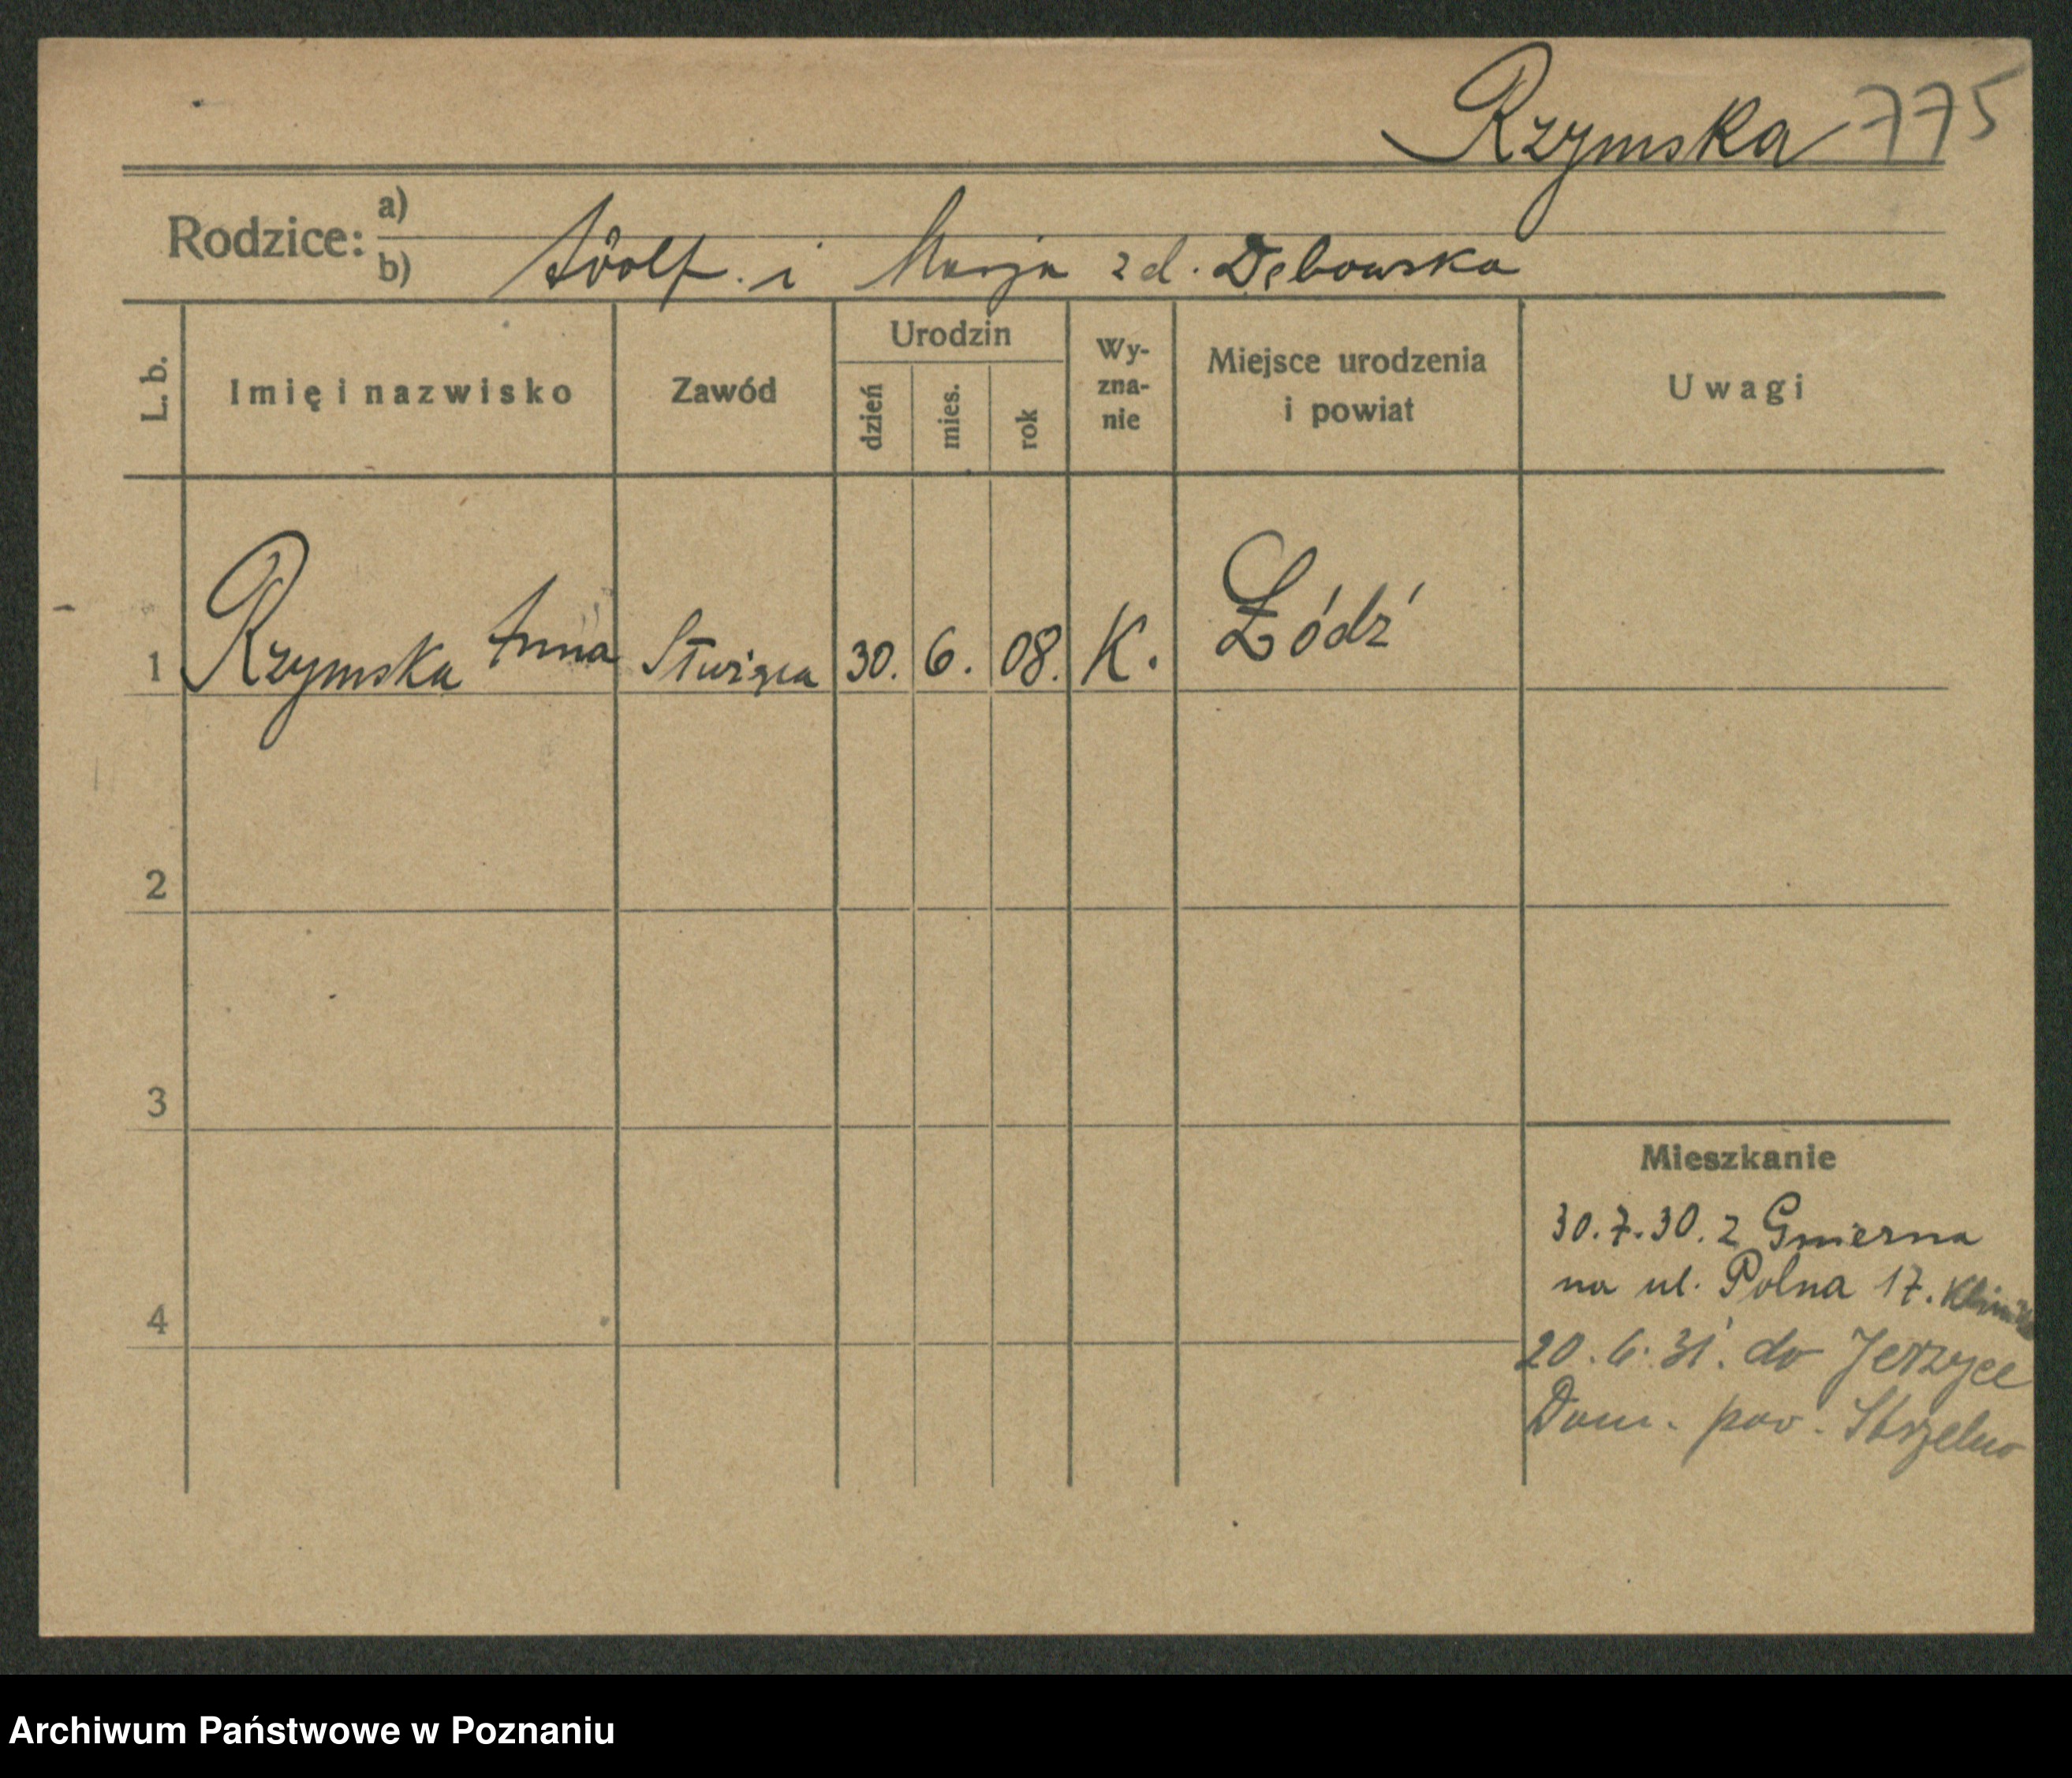 Rzymska 775
Rodzice: a)
b) Adolf i Marja z d. Dębowska
L. b.
Imię i nazwisko
Zawód
Urodzin
dzień
mies.
rok
Wy-
zna-
nie
Miejsce urodzenia
i powiat
Uwagi
1 Rzymska Anna 30. 6. 08. K. Łódź
2
3
4
Mieszkanie
30.7.30. z
na ul. Polna 17. Klinika
20.6.31. do Jerzyce
Dom. pow. Strzelno
Archiwum Państwowe w Poznaniu